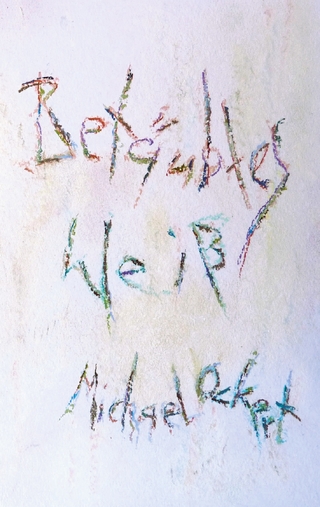 Betäubtes
Weiß
Michael Ockert